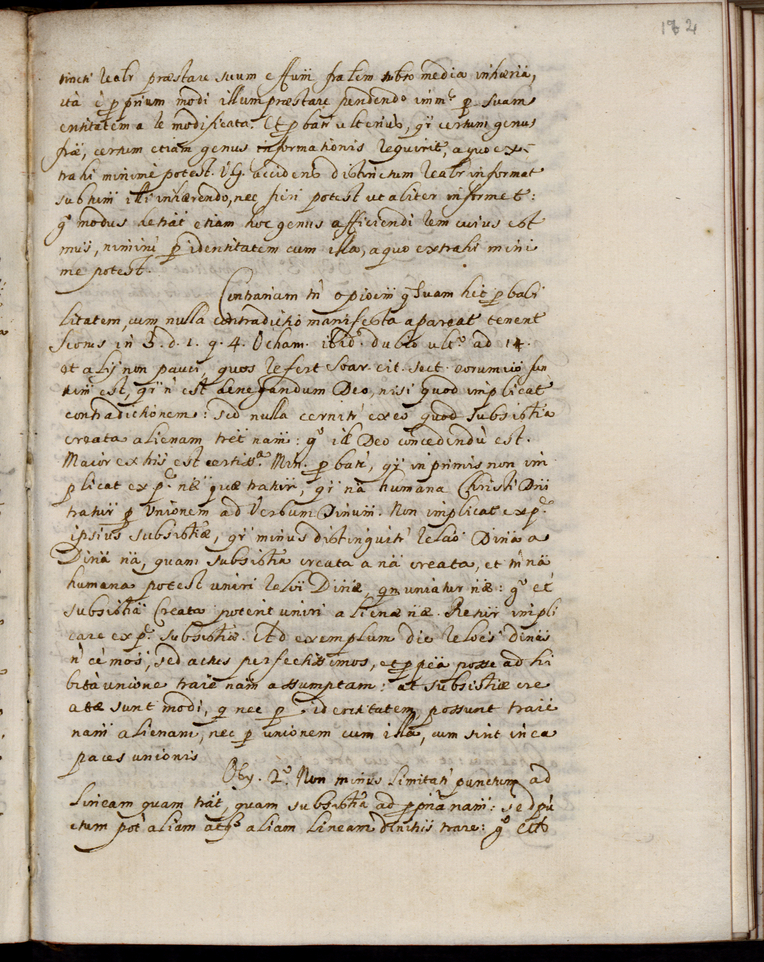 182
tincti realr præstare suum effum fralem subro media inhæria,
ita è p prium modi illum præstare pendendo imm.e p suam
entitatem a se modificata. Et p batr ulterius, qr certum genus
fræ, certum etiam genus informationis requirit, a quo ex-
trahi minime potest. V.G. accidens distinctum realr informat
subtum illi inhærendo, nec fieri potest ut aliter informet:
go modus detrat etiam hoc genus afficiendi rem cuius est
mus, nimirù p identitatem cum illa, a quo extrahi mini
me potest.
Contrariam tn opioiem q suam hèt p babi
litatem, cum nulla contradictio manifesta apareat tenent
Scotus in 3. d. 1. q. 4. Ocham. ibid. dubio ulto. ad 14.
et alij non pauci, quos refert Soar. cit. sect. eorumque fun
tum est, qr n est denegandum Deo, nisi quod implicat
contradictionem: sed nulla cernitr ex eo quod subsistia
creata alienam tret nam: go id Deo concedendù est.
Maior ex his est certissa. Min. p batr, qr in primis non im
plicat ex p.e næ quæ trahitr, qr na humana Christi Dni
trahitr p unionem ad Verbum Dinum. Non implicat ex p.e
ipsius subsistiæ, qr minus distinguitr relaõ Dina a
Dina na, quam subsistia creata a na creata, et tn na
humana potest uniri relõi Dinæ, qn uniatur næ: go et
subsistia Creata poterit uniri alienæ næ. Retur impli
care ex p.e subsistiæ. Ad exemplum dic reloes dinas
n ee mos, sed actus perfectissimos, et p pea posse ad hi
bita unione traie nam assumptam: at subsistiæ cre
atæ sunt modi, q nec p identitatem, possunt traie
nam alienam, nec p unionem cum illa, cum sint inca
paces unionis
Obij. 2o. Non minus limitatr punctum ad
lineam quam trat, quam subsistia ad p pria nam: sed pu
ctum pot aliam atqe aliam lineam dinitis traie: go etc